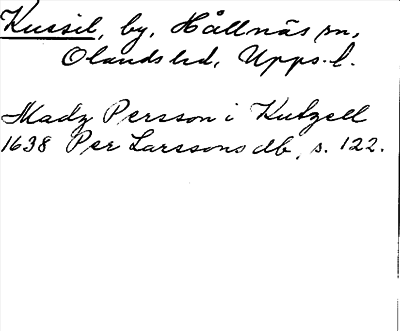 Kussil, by, Hållnäs sn,
Olands hd, Upps. l.
Madz Persson i Kutzell
1638 Per Larssons db, s. 122.